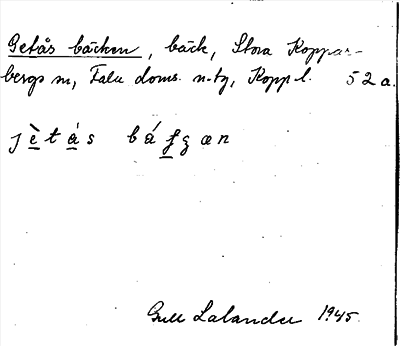 Getås bäcken, bäck, Stora Koppar-
bergs sn, Falu doms. n. tg, Kopp. l. 52a.
jètás báʃʒæn
Gull Lalander 1945.